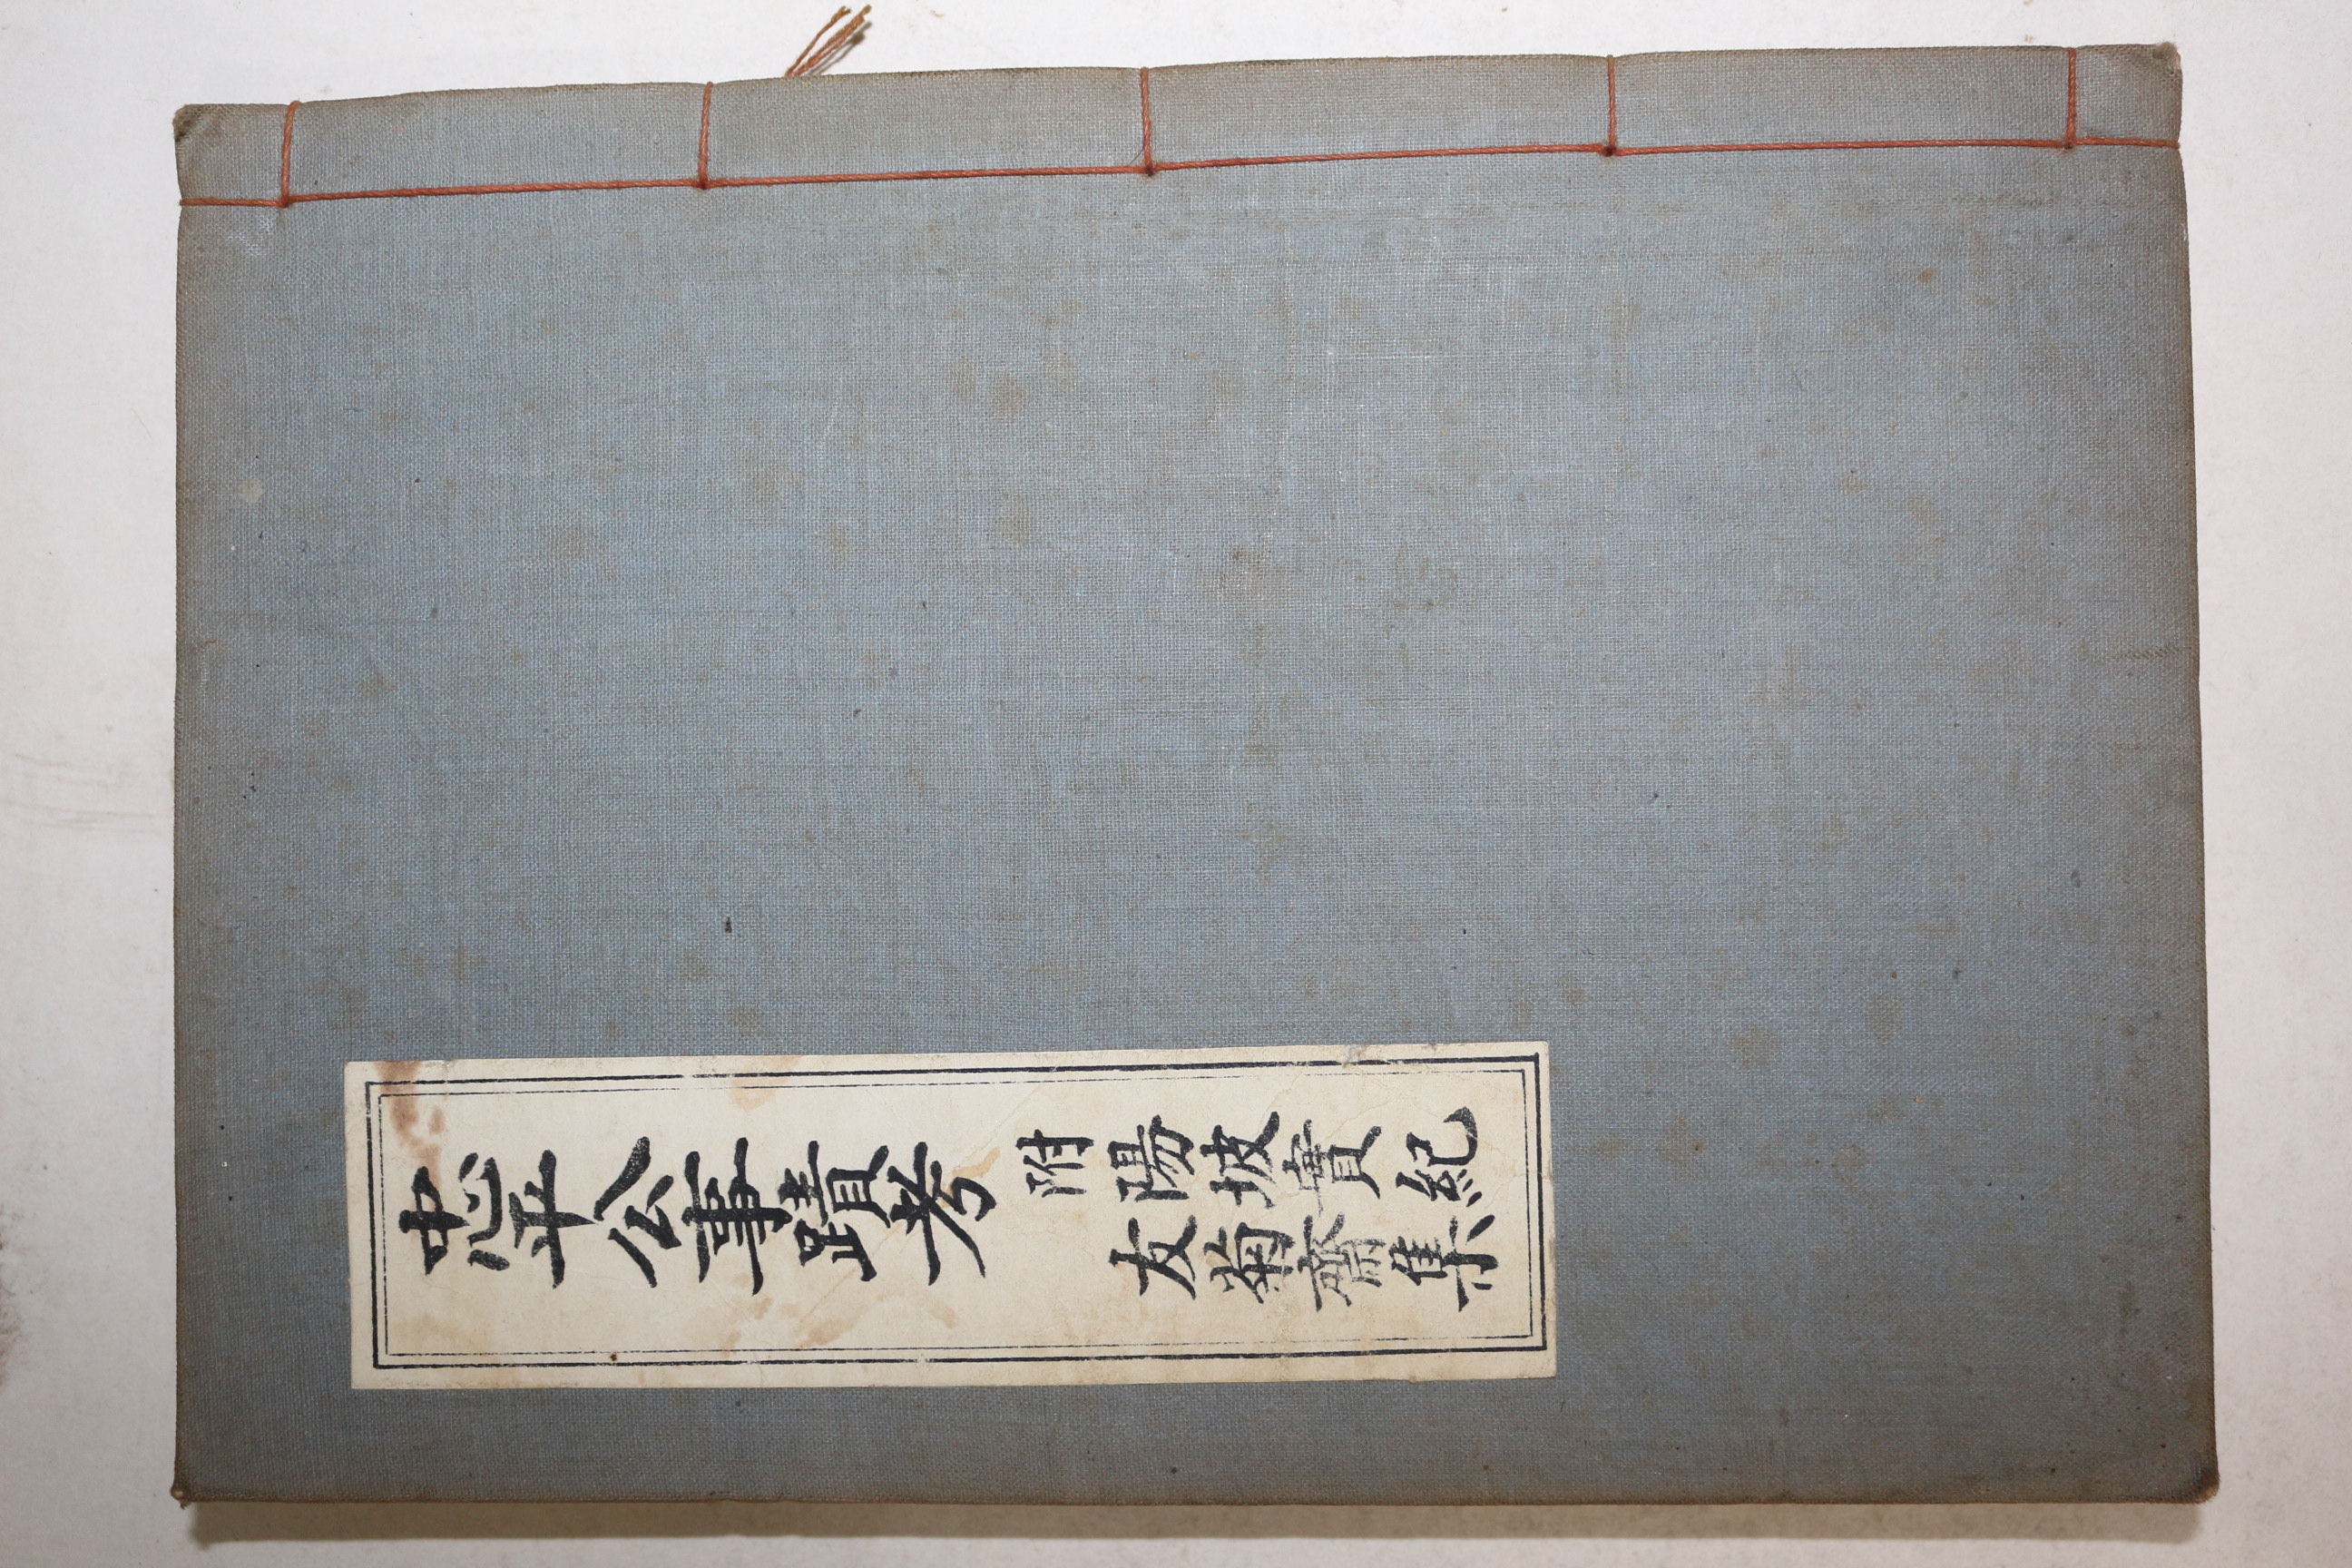 忠平公事蹟考
附
陽坡實紀
友菊齋集